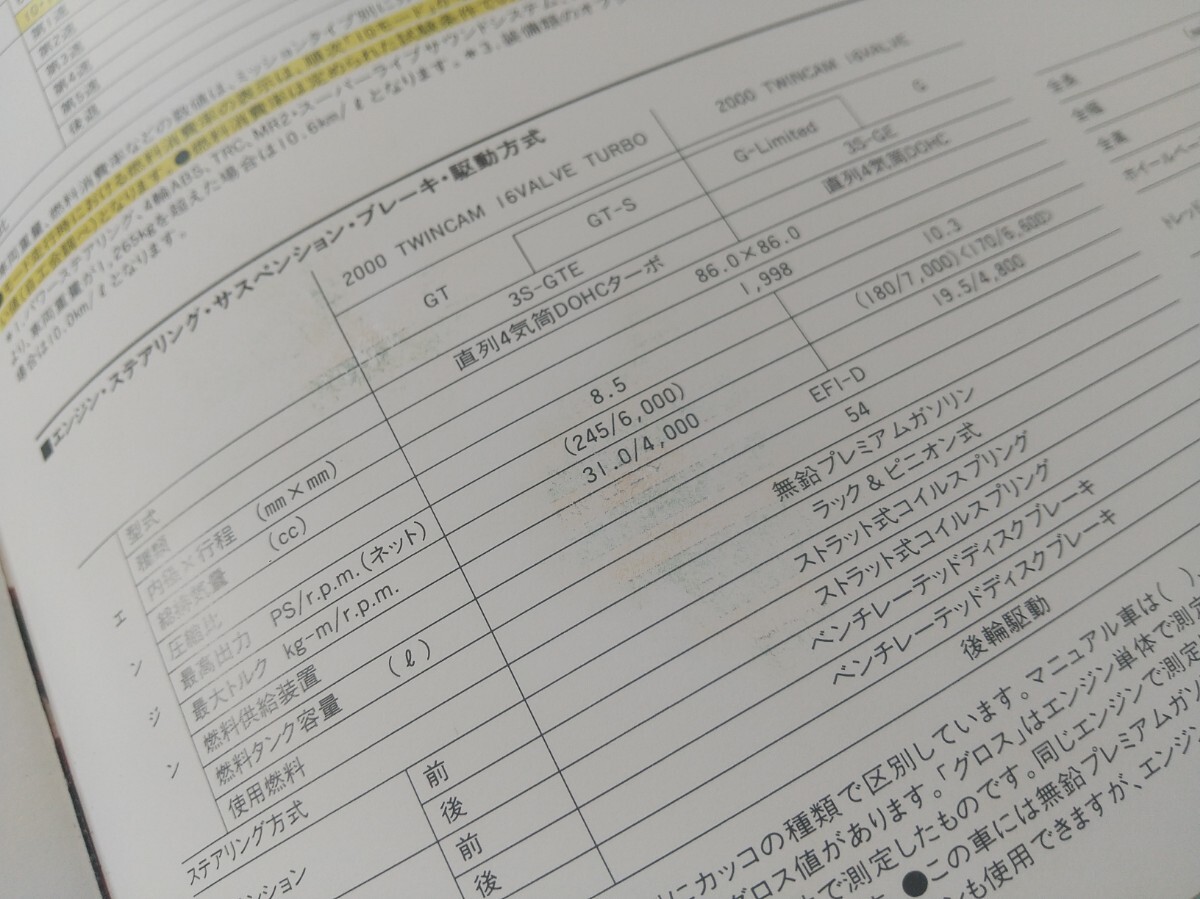 第1速
第2速
第3速
第4速
第5速
後退
燃料消費率などの数値は、ミッションタイプ別に
燃料消費率は定められた試験条件で
パワーステアリング、4輪ABS、TRC、MR2・スーパーライブサウンドシステム、
より、車両重量が1,265kgを超えた場合は10.6km/ℓとなります。*3.装備類のオプ
場合は10.0km/ℓとなります。
■エンジン・ステアリング・サスペンション・ブレーキ・駆動方式
2000 TWINCAM 16VALVE TURBO
2000 TWINCAM 16VALVE
GT
GT-S
G-Limited
G
型式
3S-GTE
3S-GE
種類
直列4気筒DOHCターボ
直列4気筒DOHC
内径×行程 (mm×mm)
86.0×86.0
総排気量 (cc)
1,998
圧縮比
8.5
10.3
最高出力 PS/r.p.m.(ネット)
(245/6,000)
(180/7,000)<170/6,600>
最大トルク kg-m/r.p.m.
31.0/4,000
19.5/4,800
燃料供給装置
EFI-D
燃料タンク容量 (ℓ)
54
使用燃料
無鉛プレミアムガソリン
エンジン
ステアリング方式
ラック&ピニオン式
ンション
前
ストラット式コイルスプリング
後
ストラット式コイルスプリング
前
ベンチレーテッドディスクブレーキ
後
ベンチレーテッドディスクブレーキ
後輪駆動
にカッコの種類で区別しています。マニュアル車は( )、
グロス値があります。「グロス」はエンジン単体で測
で測定したものです。同じエンジンで測定
●この車には無鉛プレミアムガソ
ンも使用できますが、エンジ
全長
全幅
全高
ホイールベー
トレッ